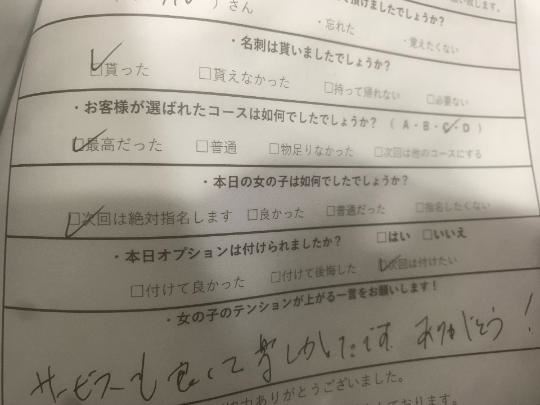 さん
・忘れた ・覚えたくない
・名刺は貰いましたでしょうか?
□貰った □貰えなかった □持って帰れない □必要ない
・お客様が選ばれたコースは如何でしたでしょうか? ( A・B・C・D )
□最高だった □普通 □物足りなかった □次回は他のコースにする
・本日の女の子は如何でしたでしょうか?
□次回は絶対指名します □良かった □普通だった □指名したくない
・本日オプションは付けられましたか? □はい □いいえ
□付けて良かった □付けて後悔した □次回は付けたい
・女の子のテンションが上がる一言をお願いします!
サービスも良くて楽しかったです ありがとう!
ありがとうございました。
ております。